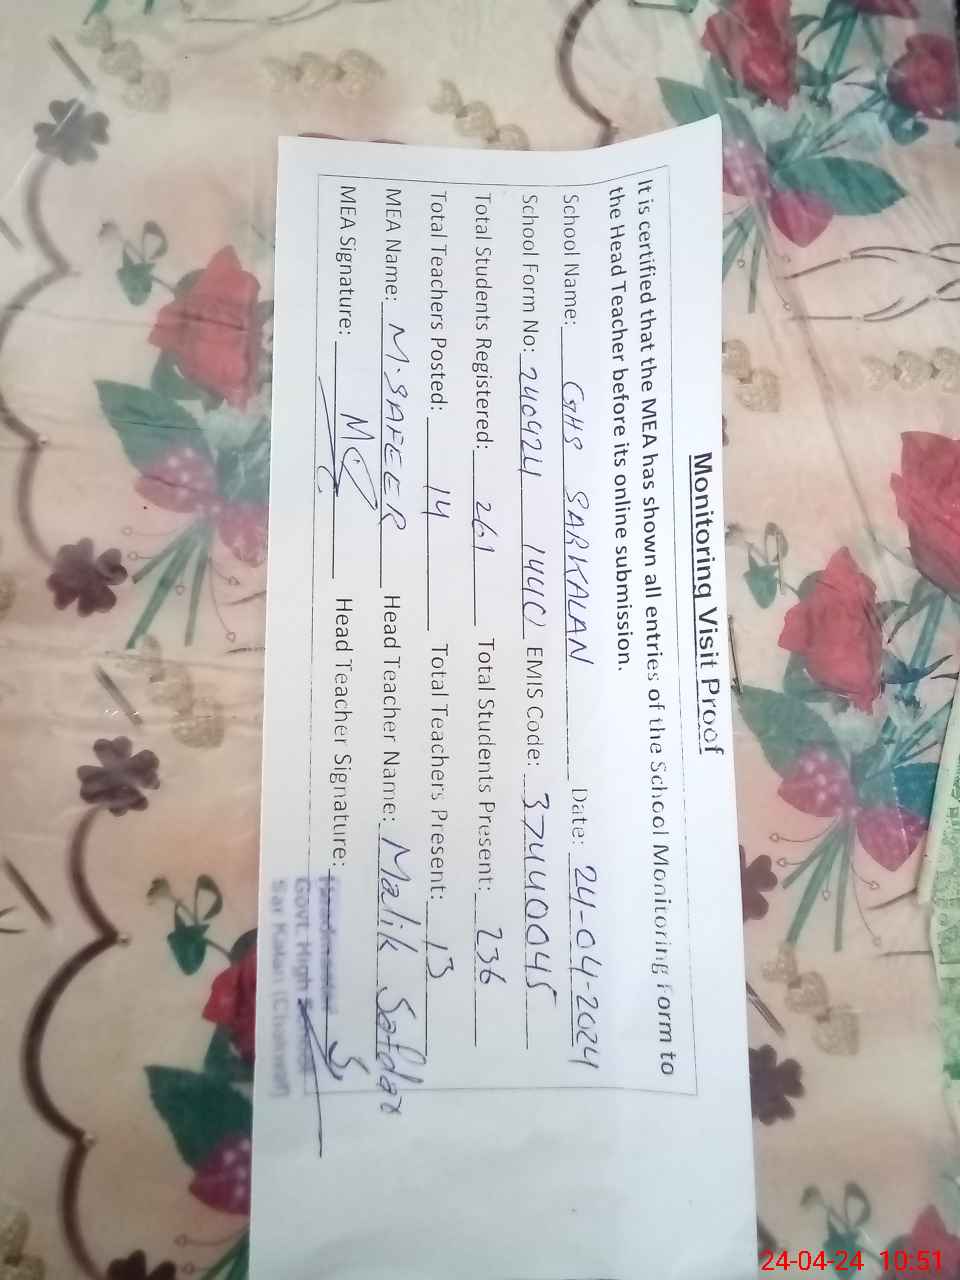 Monitoring Visit Proof
It is certified that the MEA has shown all entries of the School Monitoring Form to
the Head Teacher before its online submission.
School Name: GHS SARKALAN Date: 24-04-2024
School Form No: 240424 EMIS Code: 37440045
Total Students Registered: 261 Total Students Present: 236
Total Teachers Posted: 14 Total Teachers Present: 13
MEA Name: M. SAFEER Head Teacher Name: Malik Safdar
MEA Signature: Head Teacher Signature:
Headmaster
Govt. High
Sar Kalan (Chakwal)
24-04-24 10:51